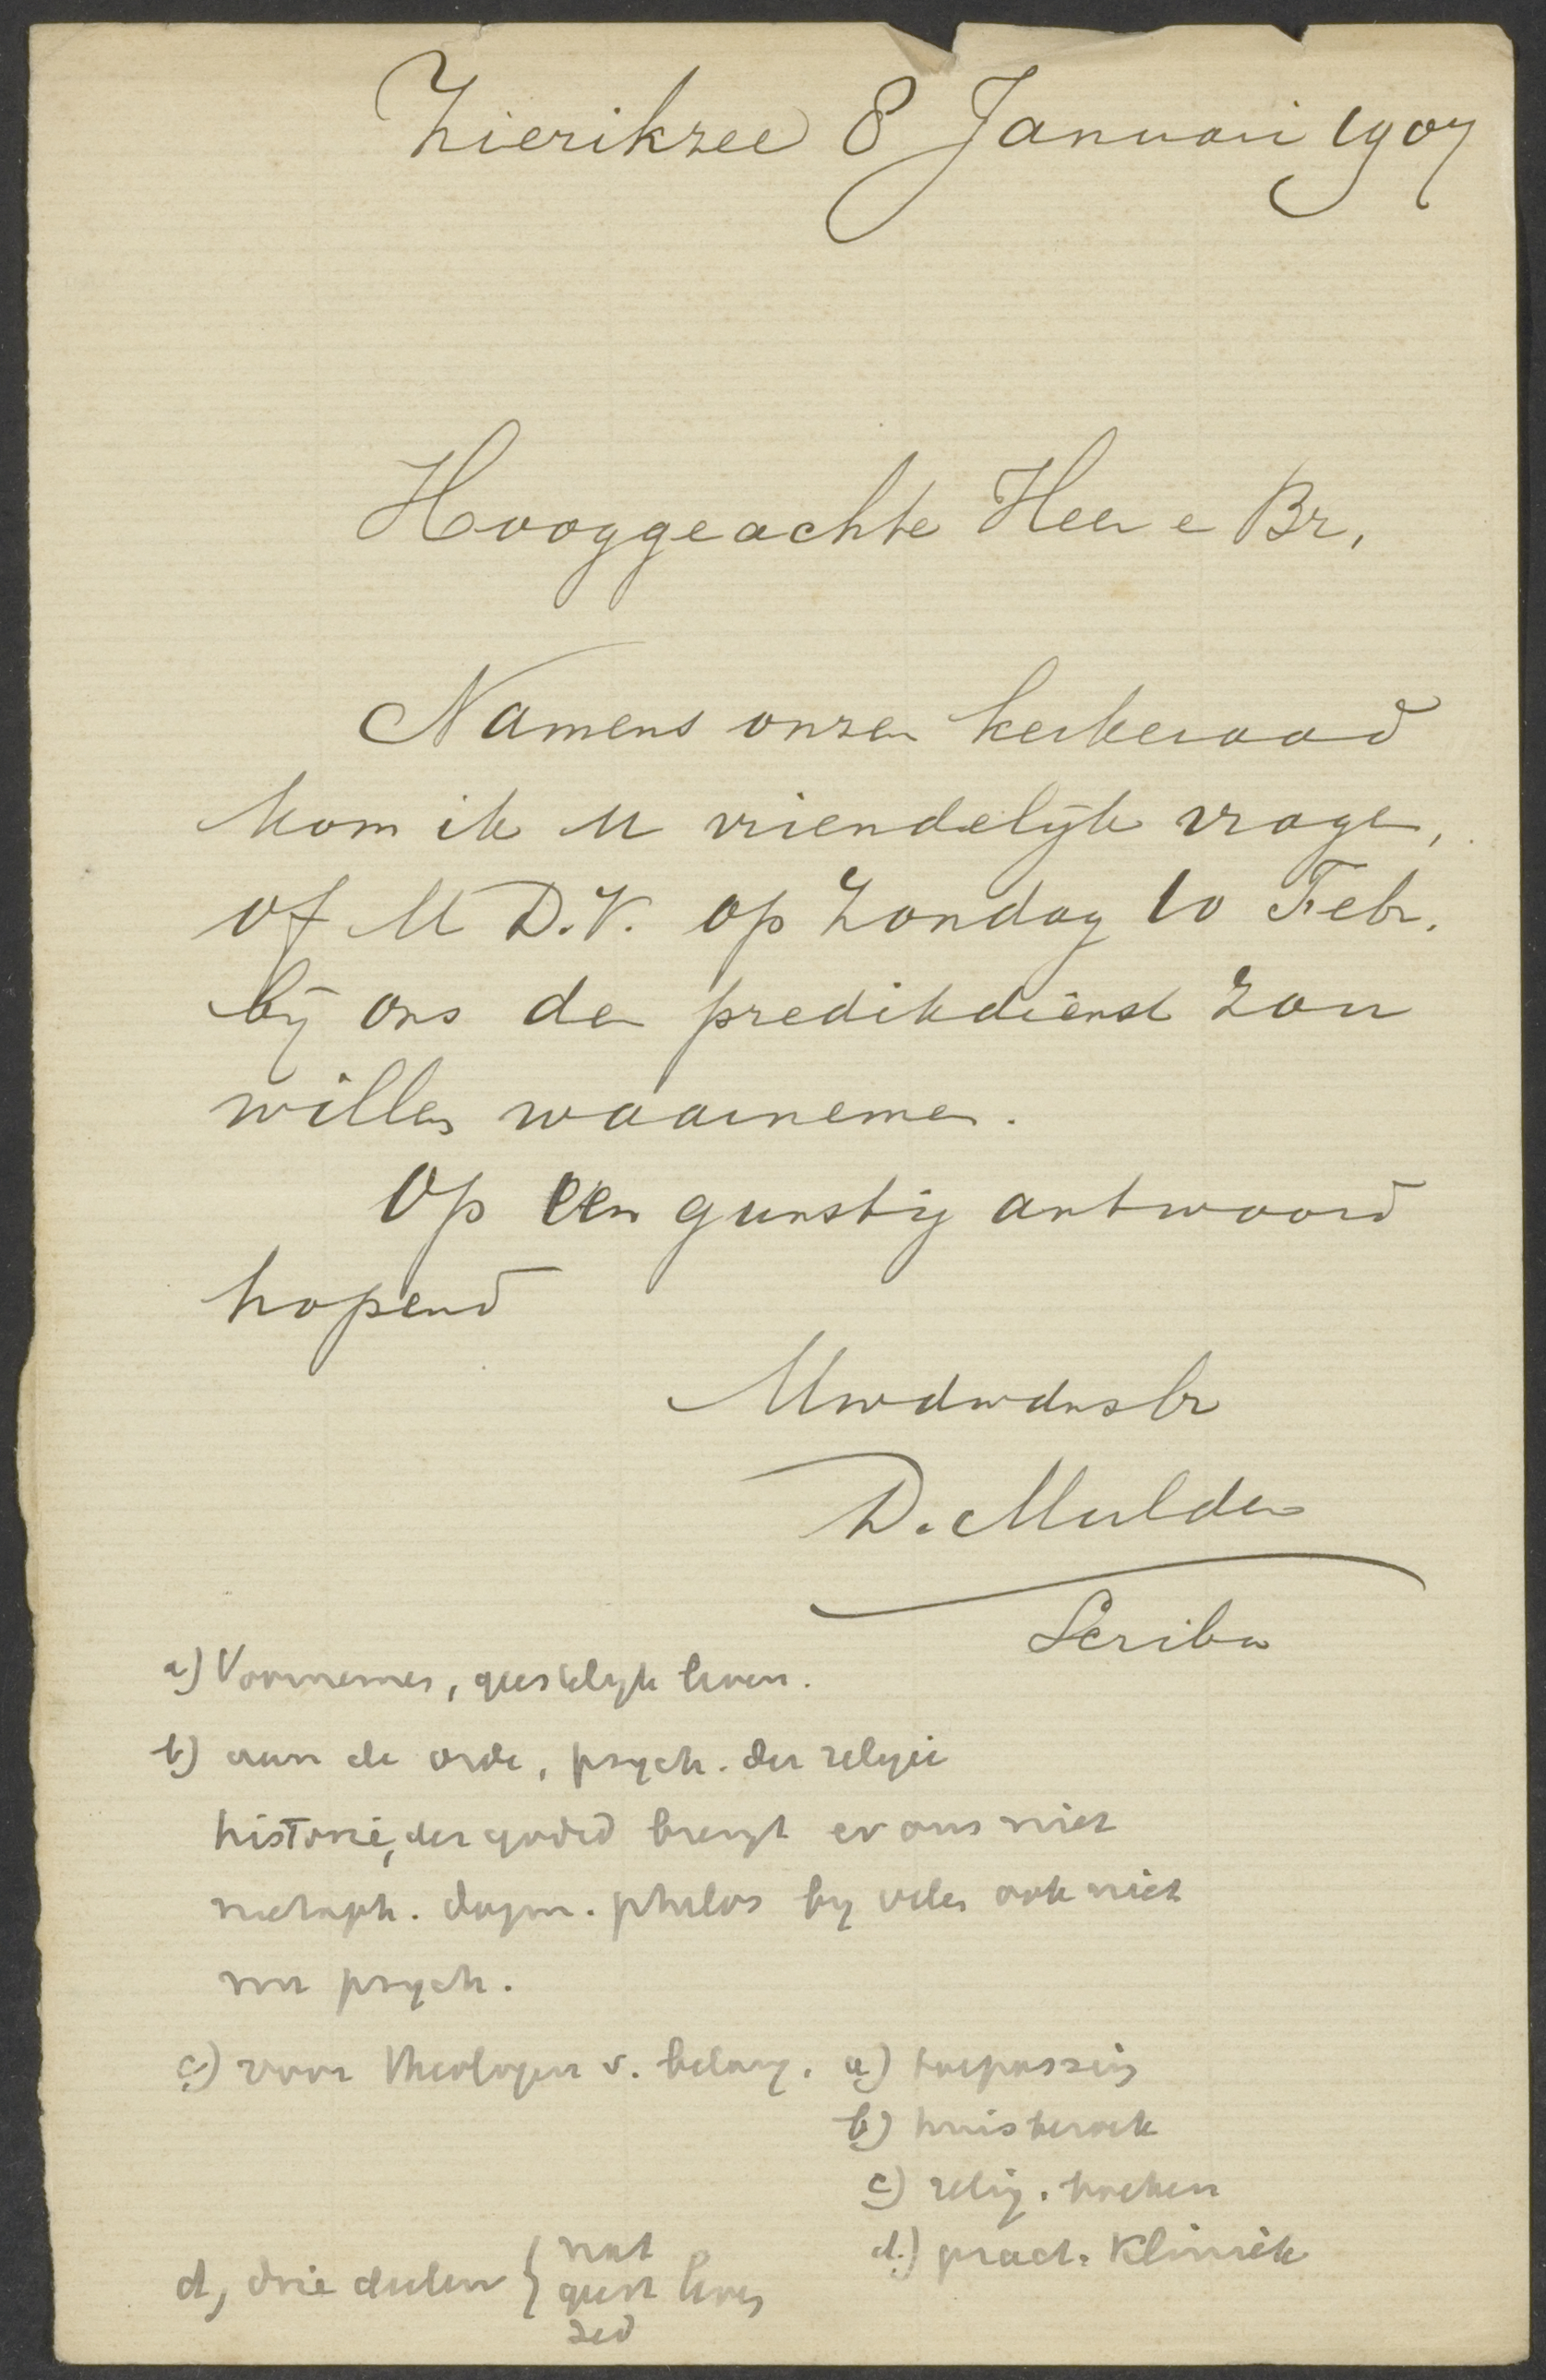 Zierikzee 8 Januari 1907
Hooggeachte Heer e Br,
Namens onzen kerkeraad
kom ik U vriendelijk vragen,
of U D.V. op Zondag 10 Febr.
bij ons den predikdienst zou
willen waarnemen.
Op een gunstig antwoord
hopend
Uwdwdnsbr
D. Mulder
Scriba
a) Voornemen, geestelijk leven.
b) aan de orde, psych. der religie
historie, der godsd brengt er ons niet
metaph. dogm. philos by velen ook niet
nu psych.
c) voor theologen v. belang. a) toepassing
b) huisbezoek
c) relig. boeken
d.) pract. Kliniek
d, drie deelen { nat
geest leven
zed